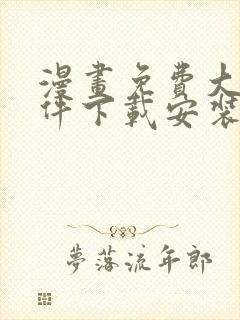 漫畫免費大
件下載安裝
夢落流年郎